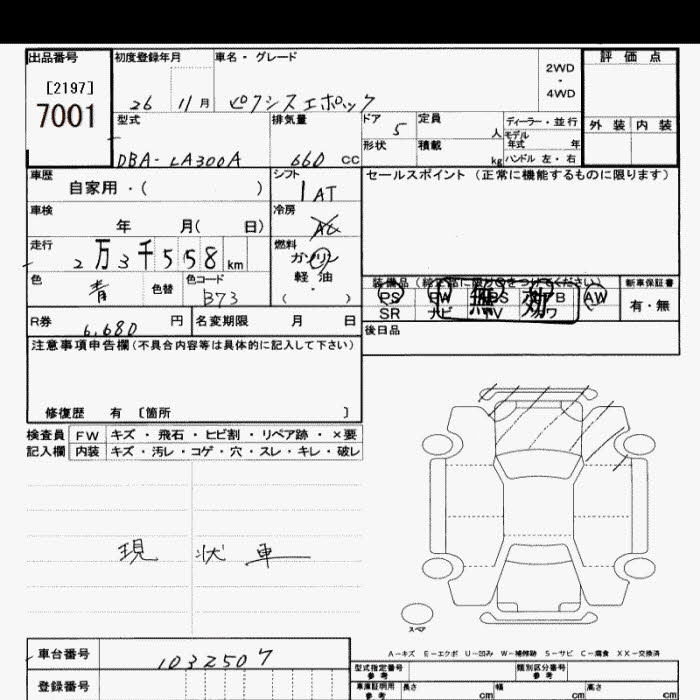 出品番号
[2197]
7001
初度登録年月
26 11月
車名・グレード
ピクシスエポック
2WD
・
4WD
評価点
外装 内装
型式
DBA-LA300A
排気量
660 cc
ドア
5
形状
定員
人
積載
kg
ディーラー・並行
モデル年式 年
ハンドル 左・右
車歴
自家用・( )
シフト
1AT
セールスポイント(正常に機能するものに限ります)
車検
年 月( 日)
冷房
AC
走行
2万3千558km
燃料
ガソリン
軽油
・
( )
色
青
色替
色コード
B73
装備品(純正品に限り○をつけてください)
PS PW AB AW
SR ナビ TV
無効
新車保証書
有・無
R券
6,680 円
名変期限 月 日
後日品
注意事項申告欄(不具合内容等は具体的に記入して下さい)
修復歴 有 〔箇所 〕
検査員
記入欄
FW キズ・飛石・ヒビ割・リペア跡・×要
内装 キズ・汚レ・コゲ・穴・スレ・キレ・破レ
現状車
スペア
A-キズ E-エクボ U-凹み W-補修跡 S-サビ C-腐食 XX-交換済
車台番号
1032507
登録番号
型式指定番号
参考
類別区分番号
参考
車庫証明用
参考
長さ cm
幅 cm
高さ cm